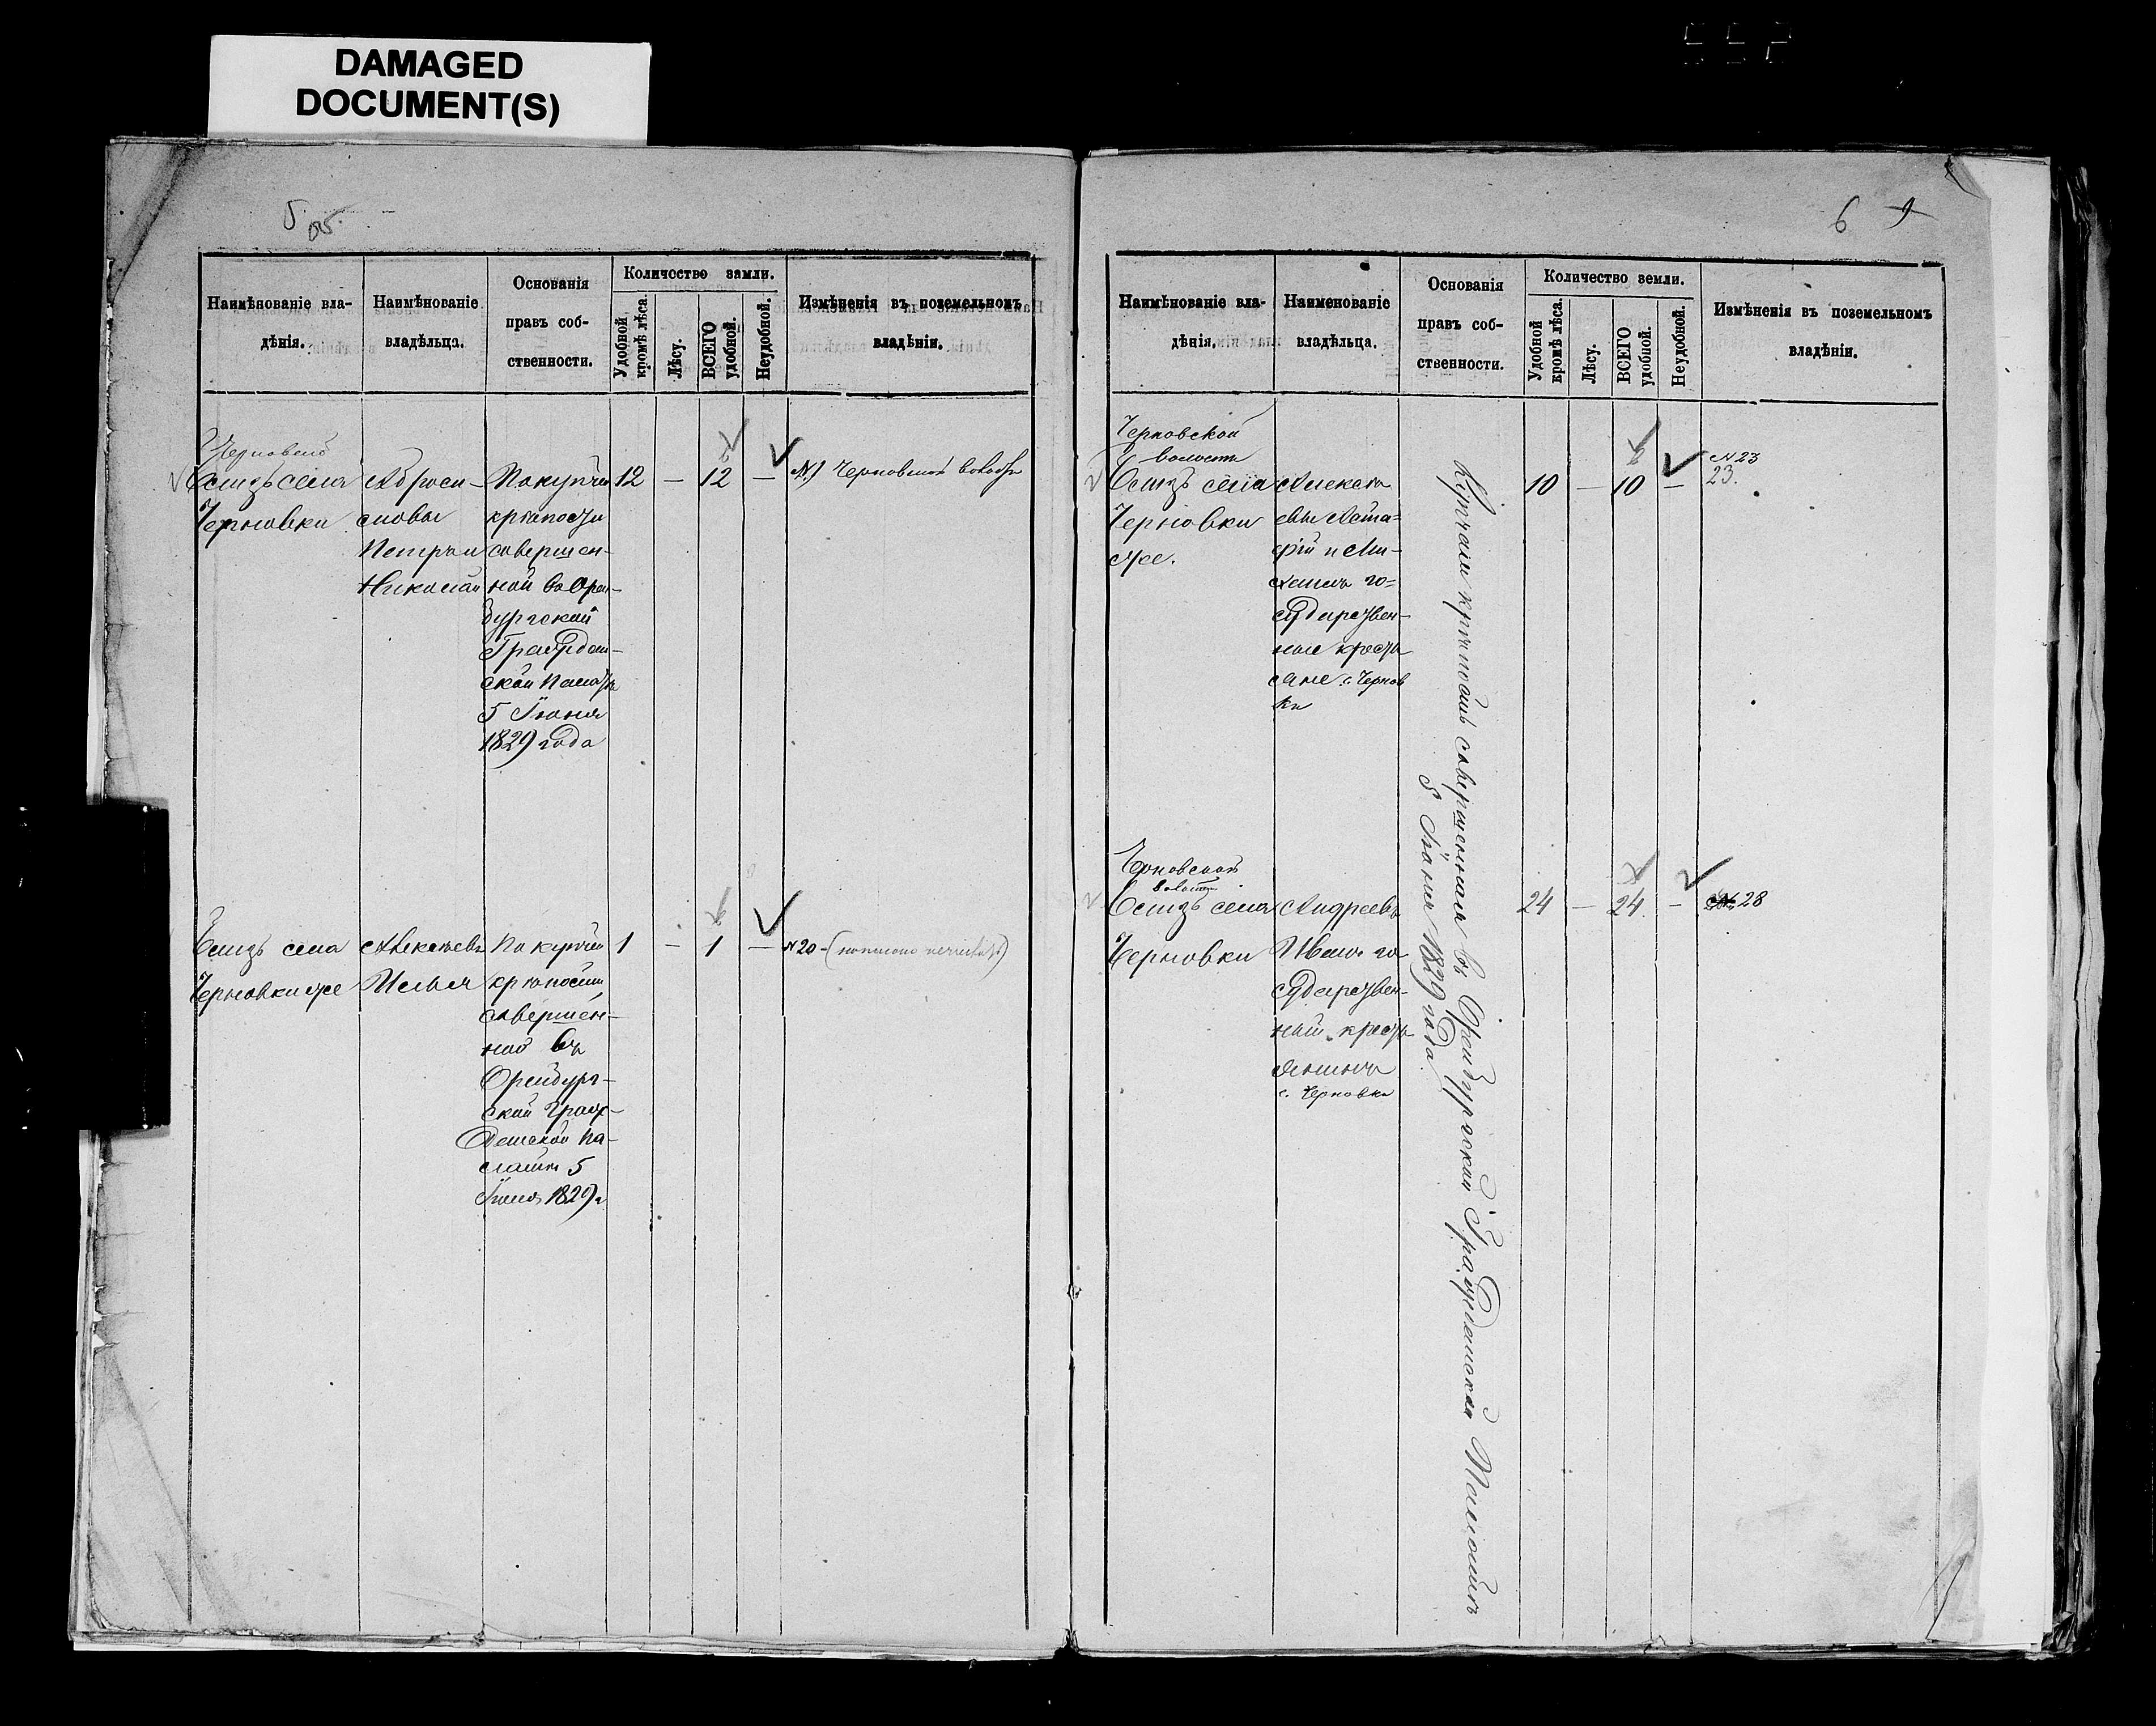 DAMAGED
DOCUMENT(S)
5
6
Наимѣнованіе вла-
дѣнія.
Наимѣнованіе
владѣльца.
Основанія
правъ соб-
ственности.
Количество земли.
Удобной
кромѣ лѣса.
Лѣсу.
ВСЕГО
удобной.
Неудобной.
Измѣненія въ поземельномъ
владѣніи.
Близъ села
Черновки
Аброси-
мовы
Петръ и
Николай
По купчей
крѣпости
совершен-
ной въ Орен-
бургской
Граждан-
ской Палатѣ
5 Іюня
1829 года
12 — 12 —
№ 1 Черновской волости
Близъ села
Черновки же
Алексѣевъ
Илья
По купчей
крѣпости
совершен-
ной въ
Оренбург-
ской Граж-
данской Па-
латѣ 5
Іюня 1829 г.
1 — 1 —
№ 20 -
Наимѣнованіе вла-
дѣнія.
Наименованіе
владѣльца.
Основанія
правъ соб-
ственности.
Количество земли.
Удобной
кромѣ лѣса.
Лѣсу.
ВСЕГО
удобной.
Неудобной.
Измѣненія въ поземельномъ
владѣніи.
Черновской
волости
Близъ села
Черновки
же.
Алексѣ
евы
го-
сударствен-
ные кресть
яне с. Чернов
ки
Купчая крѣпость совершенная въ Оренбургской Гражданской Палатѣ
5 Іюня 1829 года
10 — 10 —
№ 23
23.
Черновской
волости
Близъ села
Черновки
Андреевъ
Иванъ го
сударствен-
ный кресть
янинъ
с. Черновки
24 — 24 —
28